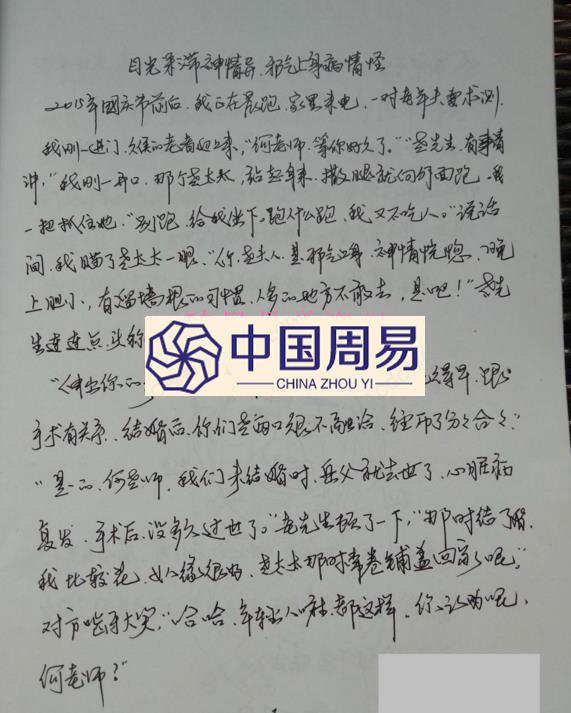 目光呆滞神情异、邪气上身病情怪
2015年国庆节前后，我正在晨跑，家里来电，一对老年夫妻求测，
我刚一进门，久候的老者迎上来，“何老师，等你好久了。”“老先生，有事请
讲，”我刚一开口，那个老太太，站起身来，撒腿就向外面跑，我
一把抓住她，“别跑，给我坐下，跑什么跑，我又不吃人。”说话
间，我瞄了老太太一眼，“你，老夫人，是邪气上身，神情恍惚，晚
上胆小，有溜墙根的习惯，人多的地方不敢去，是吧！”老先
生连连点头称
“伸出你的
得早，跟
手术有关系，结婚后，你们老两口很不融洽，经历了分分合合。”
“是的，何老师，我们未结婚时，岳父就去世了，心脏病
复发，手术后，没多久过世了。”老先生顿了一下，“那时结了婚，
我比较花，女人缘很好，老太太那时常卷铺盖回家呢，”
对方咧牙大笑，“哈哈，年轻人嘛，都这样，你说呢，
何老师？”
中国周易
CHINA ZHOU YI